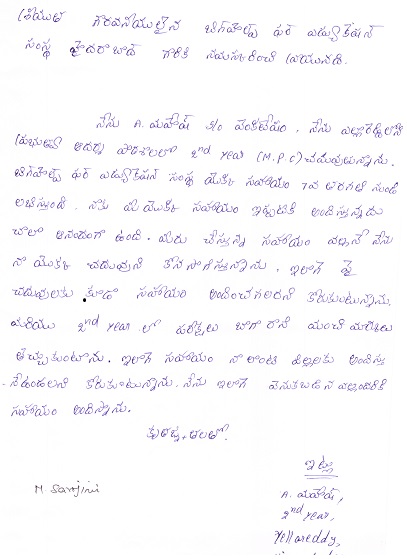 శ్రీయుత గౌరవనీయులైన బిగ్‌హెల్ప్ ఫర్ ఎడ్యుకేషన్
సంస్థ హైదరాబాద్ గారికి నమస్కరించి వ్రాయునది.
నేను A. మహేష్ s/o వెంకటేషం. నేను ఎల్లారెడ్డిలోని
ప్రభుత్వ ఆదర్శ పాఠశాలలో 2nd year (M.P.C) చదువుతున్నాను.
బిగ్‌హెల్ప్ ఫర్ ఎడ్యుకేషన్ సంస్థ యొక్క సహాయం 7వ తరగతి నుండి
లభిస్తుంది. నాకు మీ యొక్క సహాయం ఇప్పటికి అందిస్తున్నందు
చాలా ఆనందంగా ఉంది. మీరు చేస్తున్న సహాయం వల్లనే నేను
నా యొక్క చదువుని కొనసాగిస్తున్నాను. ఇలాగే పై
చదువులకు కూడా సహాయం అందించగలరని కోరుకుంటున్నాను.
మరియు 2nd year లో పరీక్షలు బాగా రాసి మంచి మార్కులు
తెచ్చుకుంటాను. ఇలాగే సహాయం నా లాంటి పిల్లలకు అందిస్తూ
నేను ఇలాగే వెనుకబడిన వాళ్ళందరికి
సహాయం అందిస్తాను.
కృతజ్ఞతలతో.
ఇట్లు
A. మహేష్,
2nd year,
Yellareddy,
M Sanjini